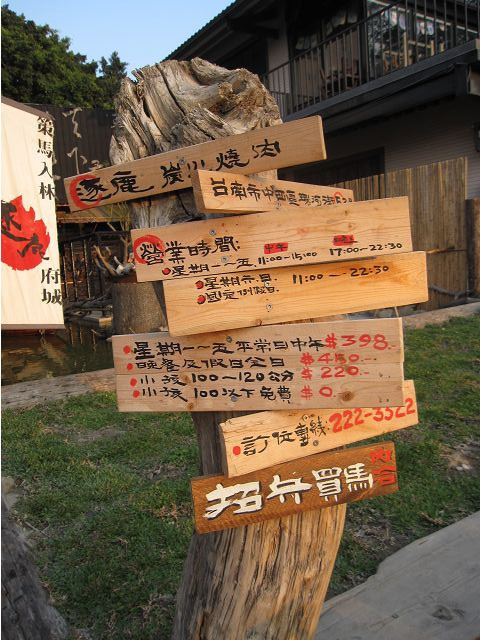 策馬入林
府城
逐鹿炭火燒肉
台南市中西區
營業時間:
中午
晚上
星期一~五 11:00~15:00 17:00~22:30
星期六.日. 11:00~22:30
國定例假日.
星期一~五平常日中午 $398.-
晚餐及假日全日 $450.-
小孩 100~120公分 $220.-
小孩 100以下免費 $0.
訂位專線: 222-3522
招兵買馬
內洽